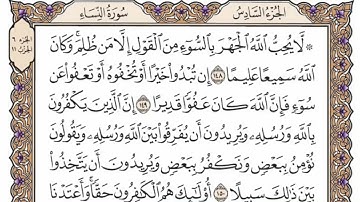 الجزء السادس
سورة النساء
۞ لَا يُحِبُّ اللَّهُ الْجَهْرَ بِالسُّوءِ مِنَ الْقَوْلِ إِلَّا مَن ظُلِمَ ۚ وَكَانَ
اللَّهُ سَمِيعًا عَلِيمًا ١٤٨ إِن تُبْدُوا خَيْرًا أَوْ تُخْفُوهُ أَوْ تَعْفُوا عَن
سُوءٍ فَإِنَّ اللَّهَ كَانَ عَفُوًّا قَدِيرًا ١٤٩ إِنَّ الَّذِينَ يَكْفُرُونَ
بِاللَّهِ وَرُسُلِهِ وَيُرِيدُونَ أَن يُفَرِّقُوا بَيْنَ اللَّهِ وَرُسُلِهِ وَيَقُولُونَ
نُؤْمِنُ بِبَعْضٍ وَنَكْفُرُ بِبَعْضٍ وَيُرِيدُونَ أَن يَتَّخِذُوا
بَيْنَ ذَٰلِكَ سَبِيلًا ١٥٠ أُولَٰئِكَ هُمُ الْكَافِرُونَ حَقًّا ۚ وَأَعْتَدْنَا